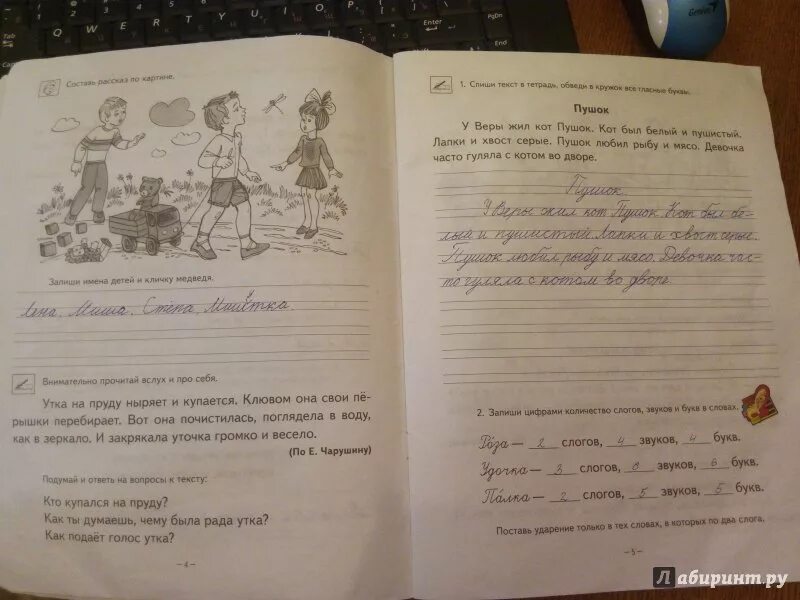 Составь рассказ по картине.
Запиши имена детей и кличку медведя.
Лена. Миша. Стёпа. Мишутка.
Внимательно прочитай вслух и про себя.
Утка на пруду ныряет и купается. Клювом она свои пё-
рышки перебирает. Вот она почистилась, поглядела в воду,
как в зеркало. И закрякала уточка громко и весело.
(По Е. Чарушину)
Подумай и ответь на вопросы к тексту:
Кто купался на пруду?
Как ты думаешь, чему была рада утка?
Как подаёт голос утка?
– 4 –
1. Спиши текст в тетрадь, обведи в кружок все гласные буквы.
Пушок
У Веры жил кот Пушок. Кот был белый и пушистый.
Лапки и хвост серые. Пушок любил рыбу и мясо. Девочка
часто гуляла с котом во дворе.
Пушок.
У Веры жил кот Пушок. Кот был бе-
лый и пушистый. Лапки и хвост серые.
Пушок любил рыбу и мясо. Девочка час-
то гуляла с котом во дворе.
2. Запиши цифрами количество слогов, звуков и букв в словах.
Ро́за — 2 слогов, 4 звуков, 4 букв.
Удочка — 3 слогов, 6 звуков, 6 букв.
Па́лка — 2 слогов, 5 звуков, 5 букв.
Поставь ударение только в тех словах, в которых по два слога.
– 5 –
Лабиринт.ру
Genius
Enter
PgDn
End
Tab
Caps